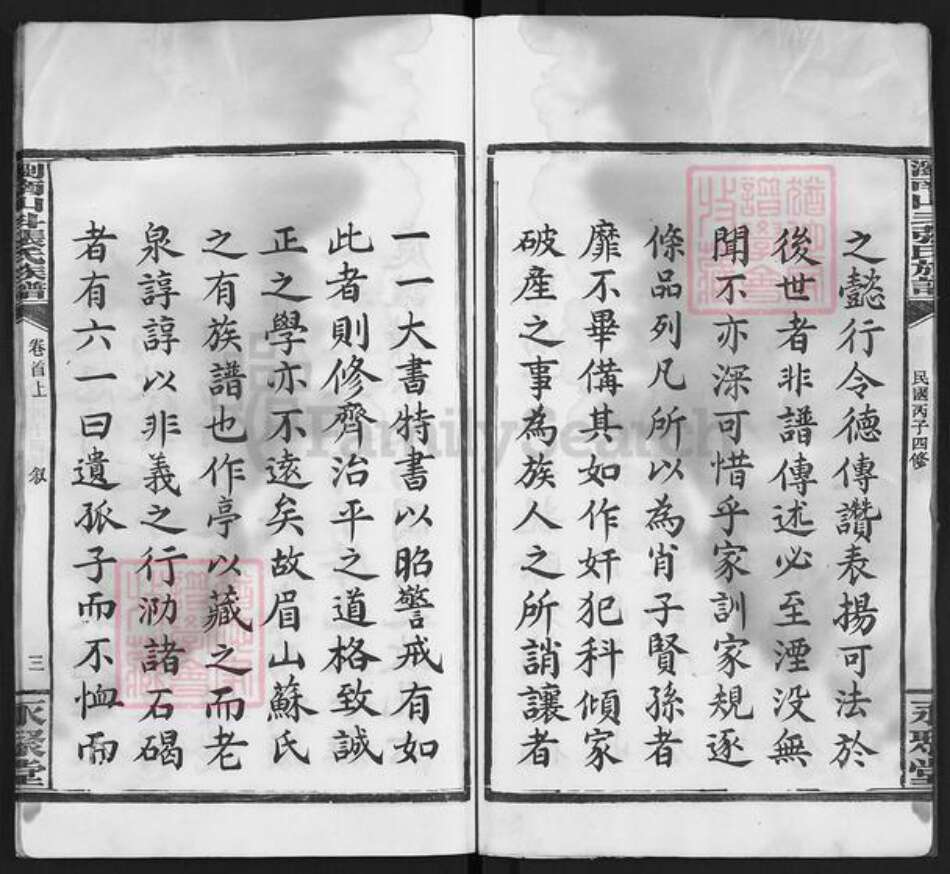 之懿行令德傳讚表揚可法於
後世者非譜傳述必至湮没無
聞不亦深可惜乎家訓家規逐
條品列凡所以為肖子賢孫者
靡不畢備其如作奸犯科傾家
破產之事為族人之所誚讓者
民國丙子四修
永聚堂
一一大書特書以昭警戒有如
此者則修齊治平之道格致誠
正之學亦不逺矣故眉山蘇氏
之有族譜也作亭以藏之而老
泉諄諄以非義之行泐諸石碣
者有六一曰遺孤子而不恤而
張氏族譜
卷首上
叙
三
永聚堂
FamilySearch